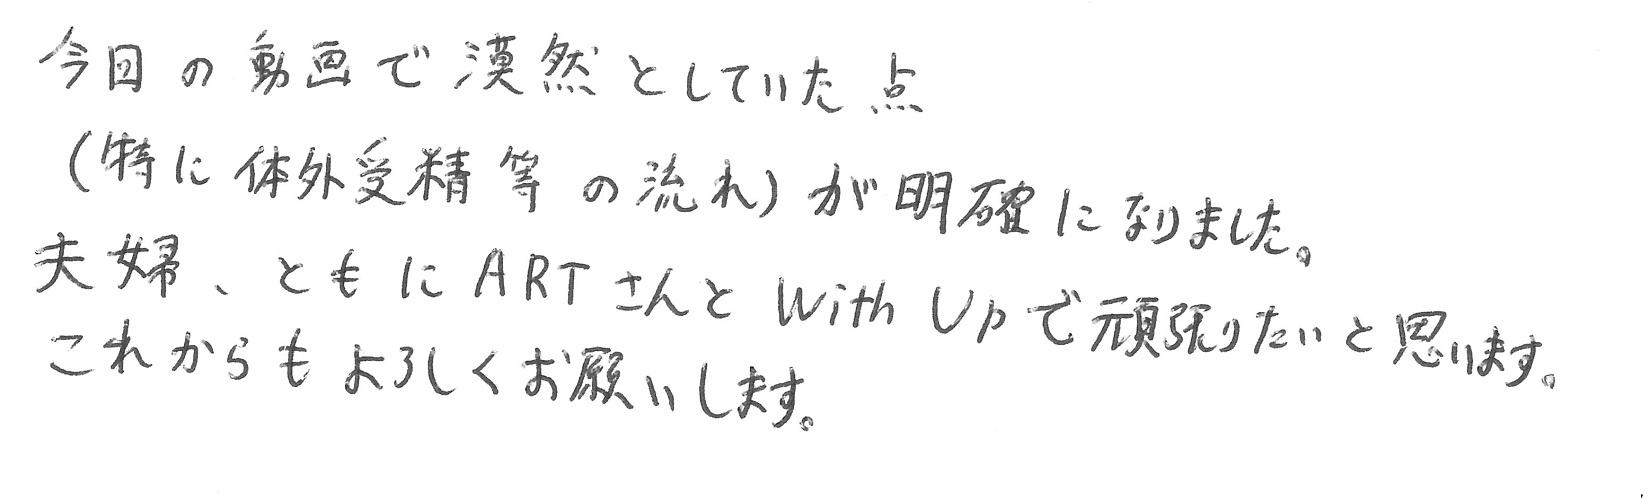 今回の動画で漠然としていた点
(特に体外受精等の流れ)が明確になりました。
夫婦、ともにARTさんとWith Upで頑張りたいと思います。
これからもよろしくお願いします。